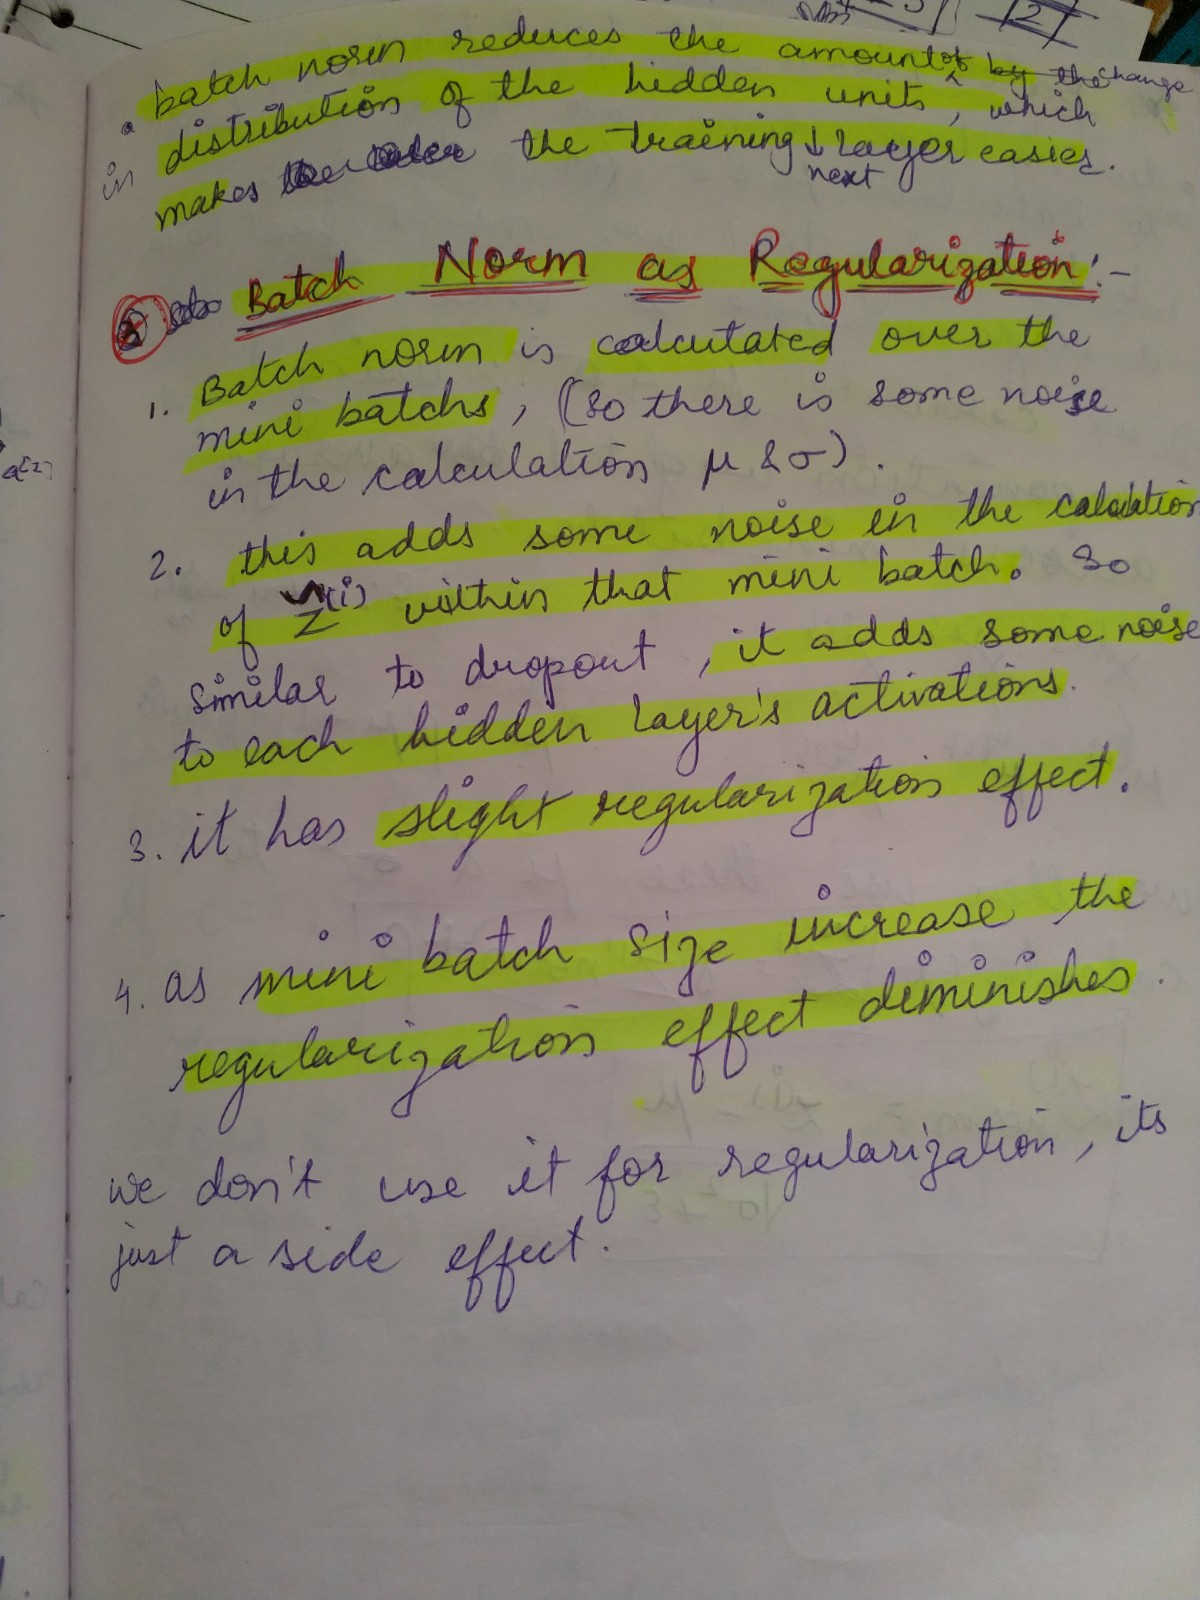 • batch norm reduces the amount of change
in distribution of the hidden units, which
makes the training next layer easier.
Batch Norm as Regularization:-
1. Batch norm is calculated over the
mini batchs, (so there is some noise
in the calculation μ & σ).
2. this adds some noise in the calculation
of Z̃(i) within that mini batch. So
similar to dropout, it adds some noise
to each hidden layer's activations.
3. it has slight regularization effect.
4. as mini batch size increase the
regularization effect diminishes.
we don't use it for regularization, its
just a side effect.
a[2]
2